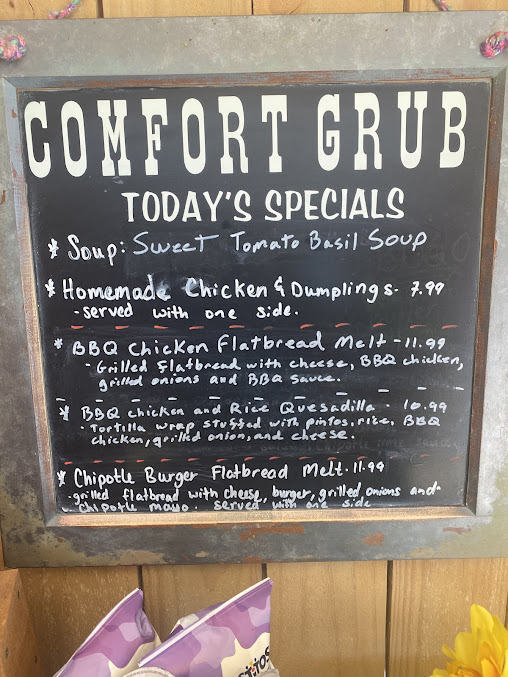 COMFORT GRUB
TODAY'S SPECIALS
* Soup: Sweet Tomato Basil Soup
* Homemade Chicken & Dumplings- 7.99
- served with one side.
* BBQ Chicken Flatbread Melt - 11.99
- Grilled flatbread with cheese, BBQ chicken,
grilled onions and BBQ sauce.
* BBQ chicken and Rice Quesadilla - 10.99
- Tortilla wrap stuffed with pintos, rice, BBQ
chicken, grilled onion, and cheese.
* Chipotle Burger Flatbread Melt. 11.99
- grilled flatbread with cheese, burger, grilled onions and
chipotle mayo. served with one side